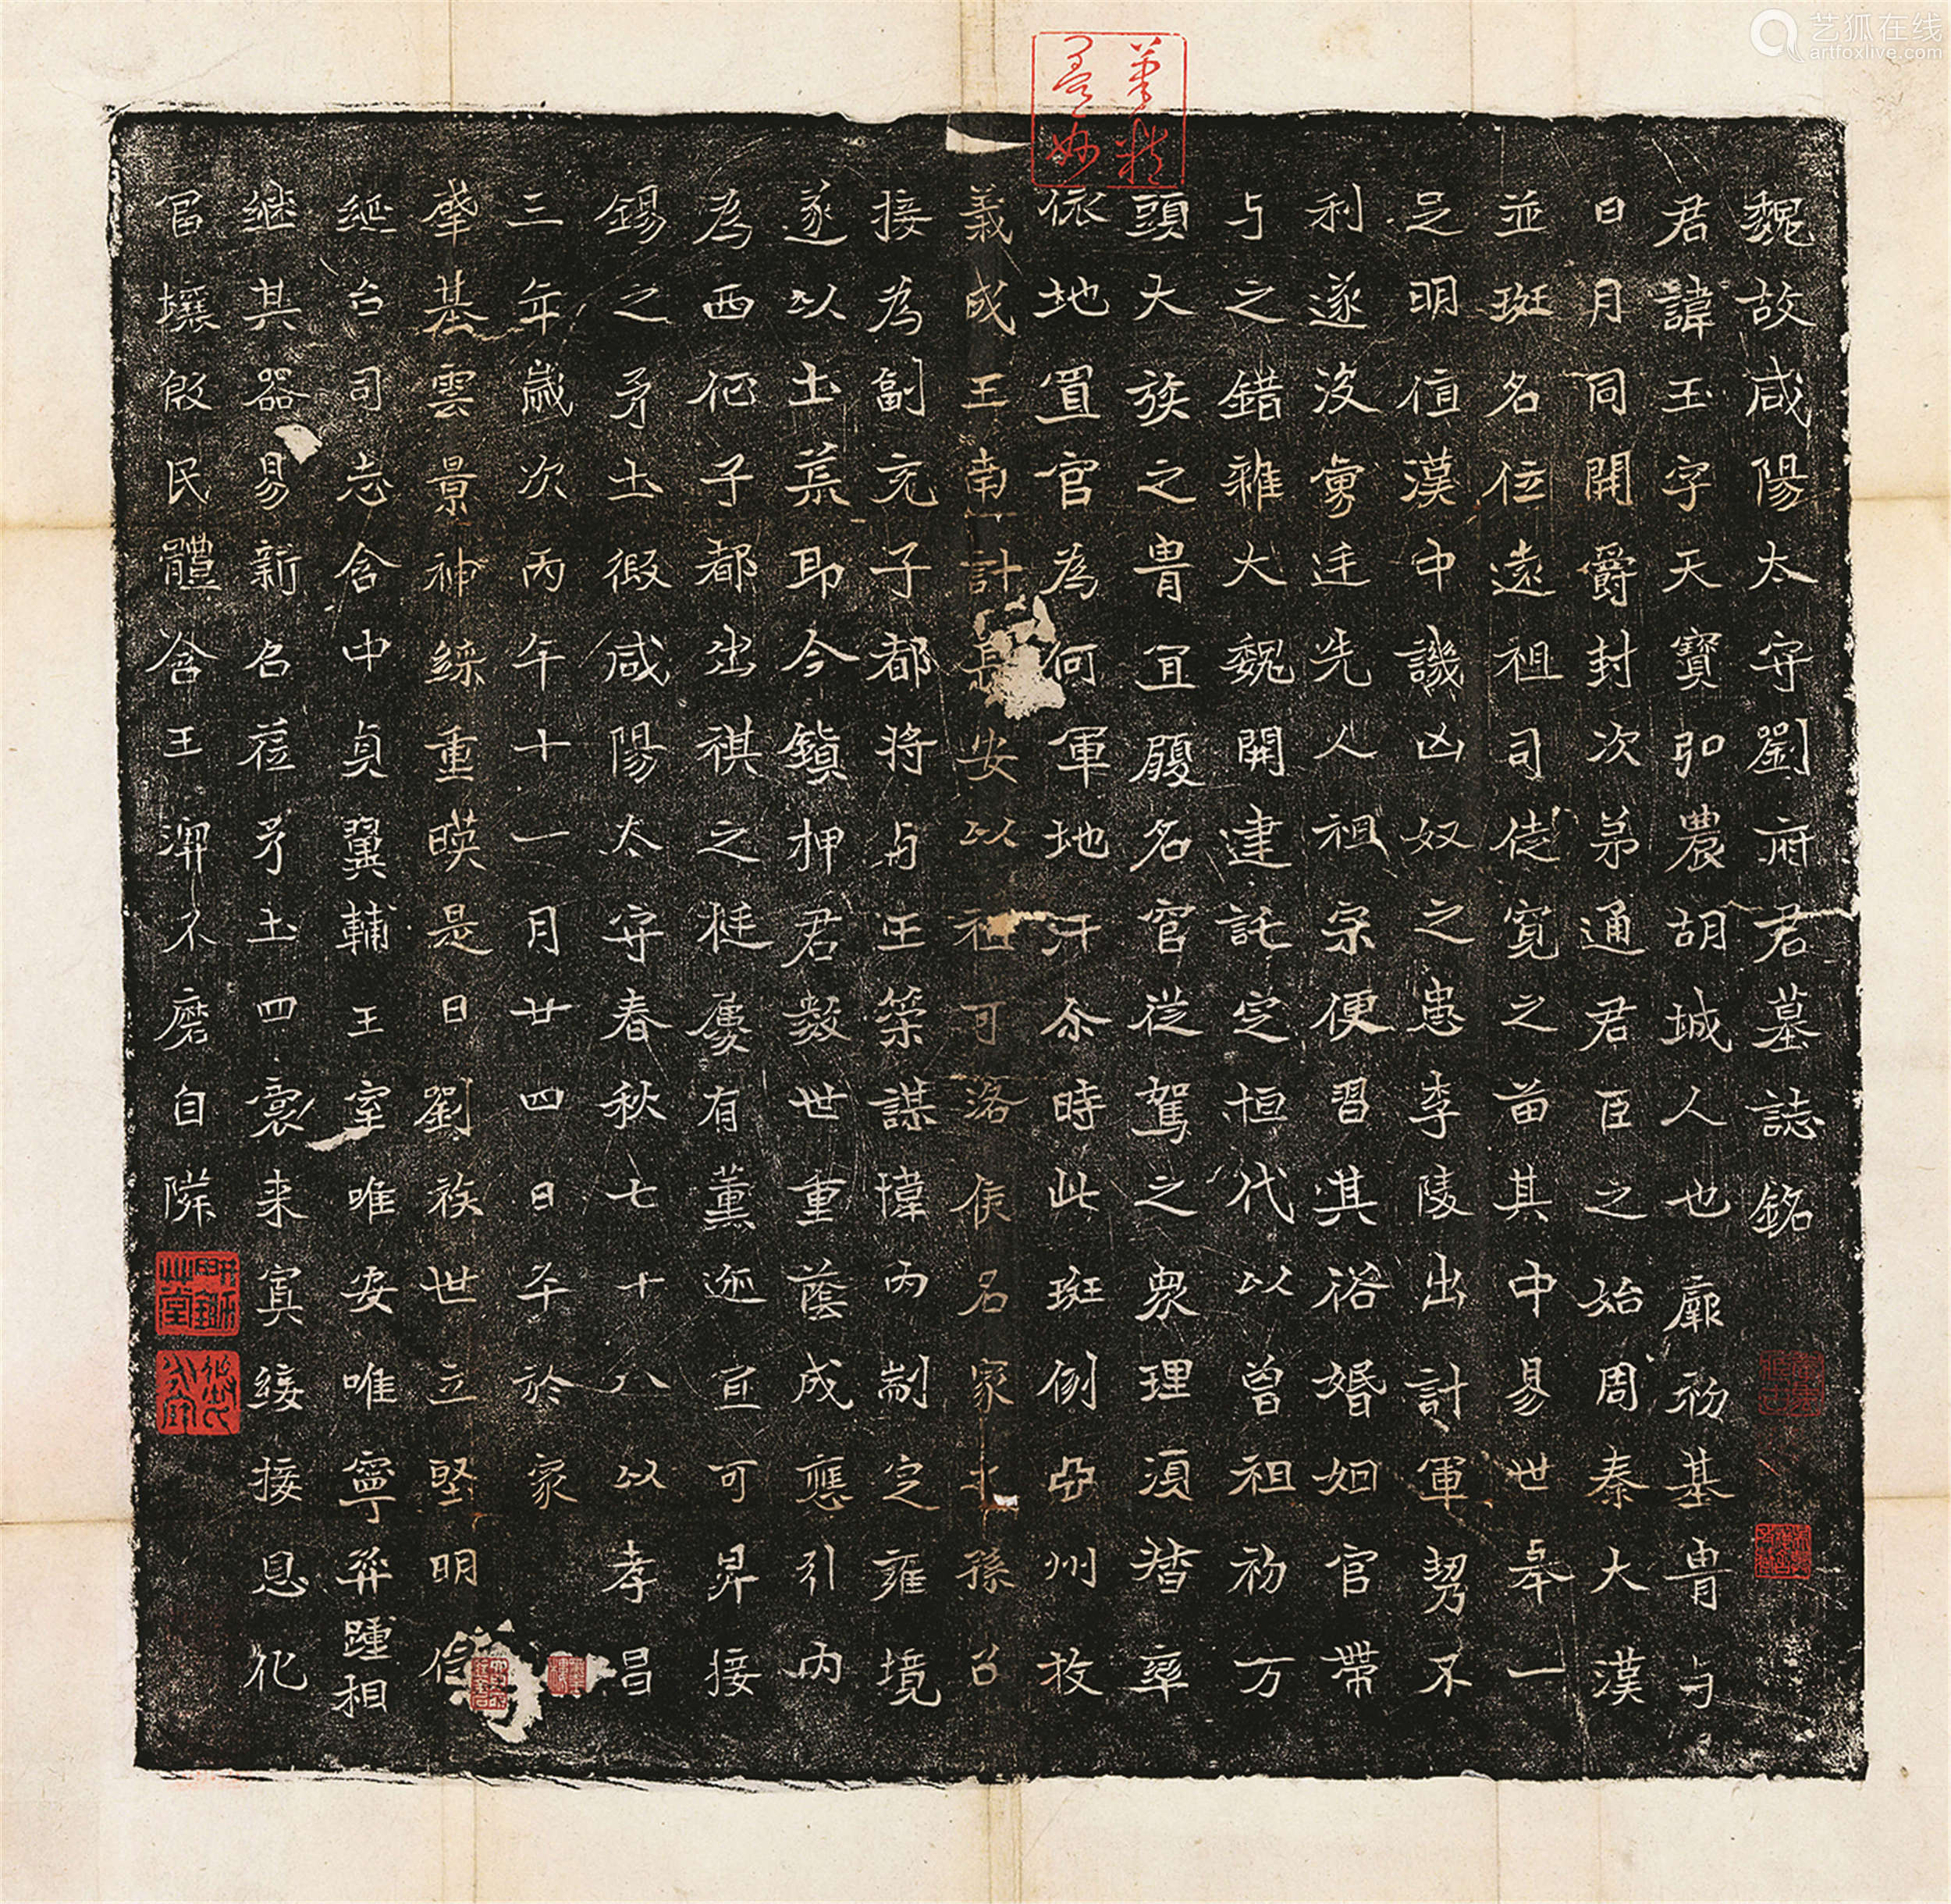 魏故咸陽太守劉府君墓誌銘
君諱玉字天寶弘農胡城人也厥初基胄与
日月同開爵封次弟通君臣之始周秦大漢
並班名位遠祖司徒寬之苗其中易世舉一
足明值漢中譏凶奴之患李陵出討軍勢不
利遂沒虜廷先人祖宗便習其俗婚姻官帶
与之錯雜大魏開建託定恒代以曾祖初万
頭大族之胄宜履名官從駕之眾理須督率
依地置官為何渾地汗尒時此班例亞州牧
義成王南討長安以祖可洛侯名家之孫召
接為副充子都將与王築謀瑋內制定雍境
遂以土荒耶今鎮押君數世重蔭成應引內
為西征子子都出祺之梃屢有薰迹宜可昇接
錫之矛土假咸陽太守春秋七十八以孝昌
三年歲次丙午十一月廿四日卒於家
肇基雲景神綵重暎是日劉族世立堅明
綖台司志含中貞翼輔王室唯安唯寧弈踵相
继其器易新名莅矛土四裹来寞綏接恩化
富壤殷民體含王澤不磨自隣
艺狐在线
artfoxlive.com